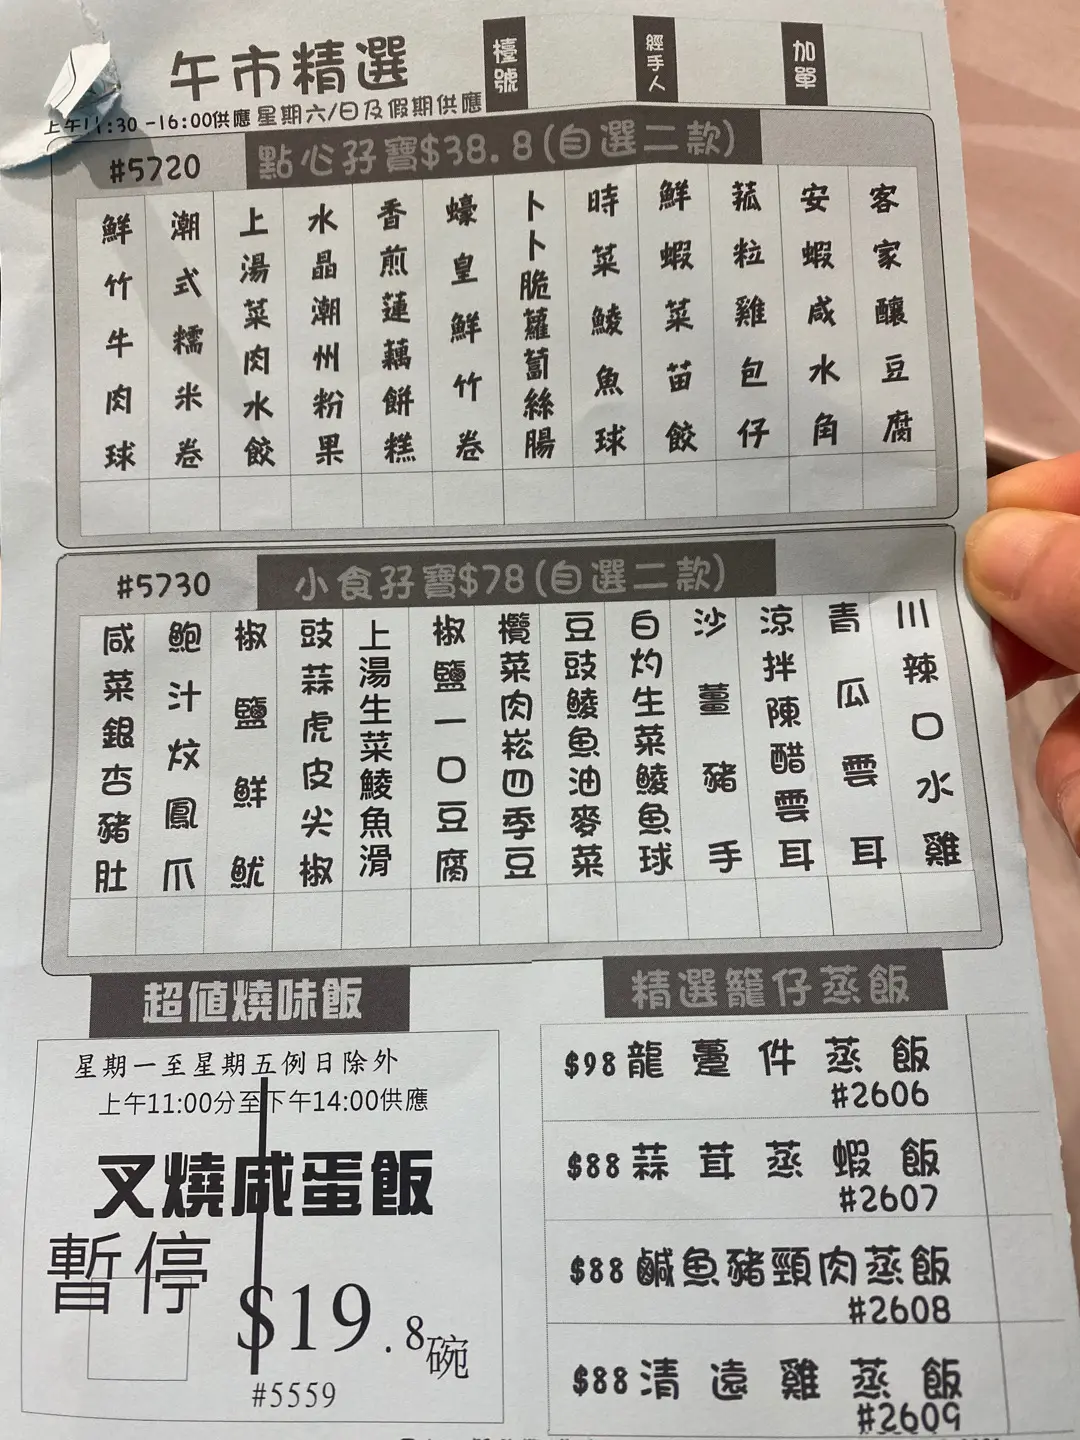 午市精選
檯號
經手人
加單
上午11:30 -16:00供應 星期六/日及假期供應
#5720
點心孖寶$38.8(自選二款)
鮮竹牛肉球
潮式糯米卷
上湯菜肉水餃
水晶潮州粉果
香煎蓮藕餅糕
蠔皇鮮竹卷
卜卜脆蘿蔔絲腸
時菜鯪魚球
鮮蝦菜苗餃
菰粒雞包仔
安蝦咸水角
客家釀豆腐
#5730
小食孖寶$78(自選二款)
咸菜銀杏豬肚
鮑汁炆鳳爪
椒鹽鮮魷
豉蒜虎皮尖椒
上湯生菜鯪魚滑
椒鹽一口豆腐
欖菜肉崧四季豆
豆豉鯪魚油麥菜
白灼生菜鯪魚球
沙薑豬手
涼拌陳醋雲耳
青瓜雲耳
川辣口水雞
超值燒味飯
星期一至星期五例日除外
上午11:00分至下午14:00供應
叉燒咸蛋飯
暫停
$19.8碗
#5559
精選籠仔蒸飯
$98龍躉件蒸飯
#2606
$88蒜茸蒸蝦飯
#2607
$88鹹魚豬頸肉蒸飯
#2608
$88清遠雞蒸飯
#2609